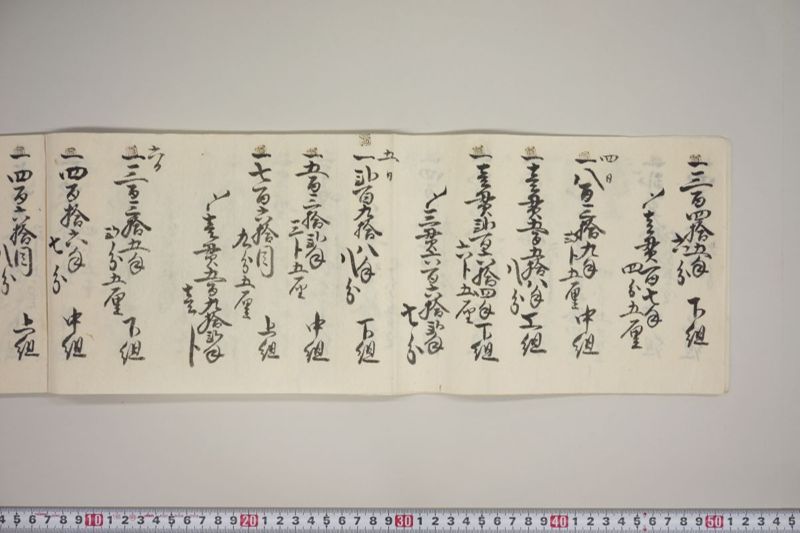 一三百四拾五匁六分 下組
〆壱貫百七匁四分五厘
四日
一八百三拾九匁弐分五厘 中組
一壱貫五百五拾八匁八分 上組
一壱貫弐百六拾四匁六分五厘 下組
〆三貫六百六拾弐匁七分
五日
一弐百九拾八匁八分 下組
一五百三拾弐匁三分五厘 中組
一七百六拾目九分五厘 上組
〆壱貫五百九拾弐匁壱分
六日
一三百三拾五匁弐分五厘 下組
一四百拾六匁七分 中組
一四百六拾目八分 上組
4 5 6 7 8 9 10 1 2 3 4 5 6 7 8 9 20 1 2 3 4 5 6 7 8 9 30 1 2 3 4 5 6 7 8 9 40 1 2 3 4 5 6 7 8 9 50 1 2 3 4 5